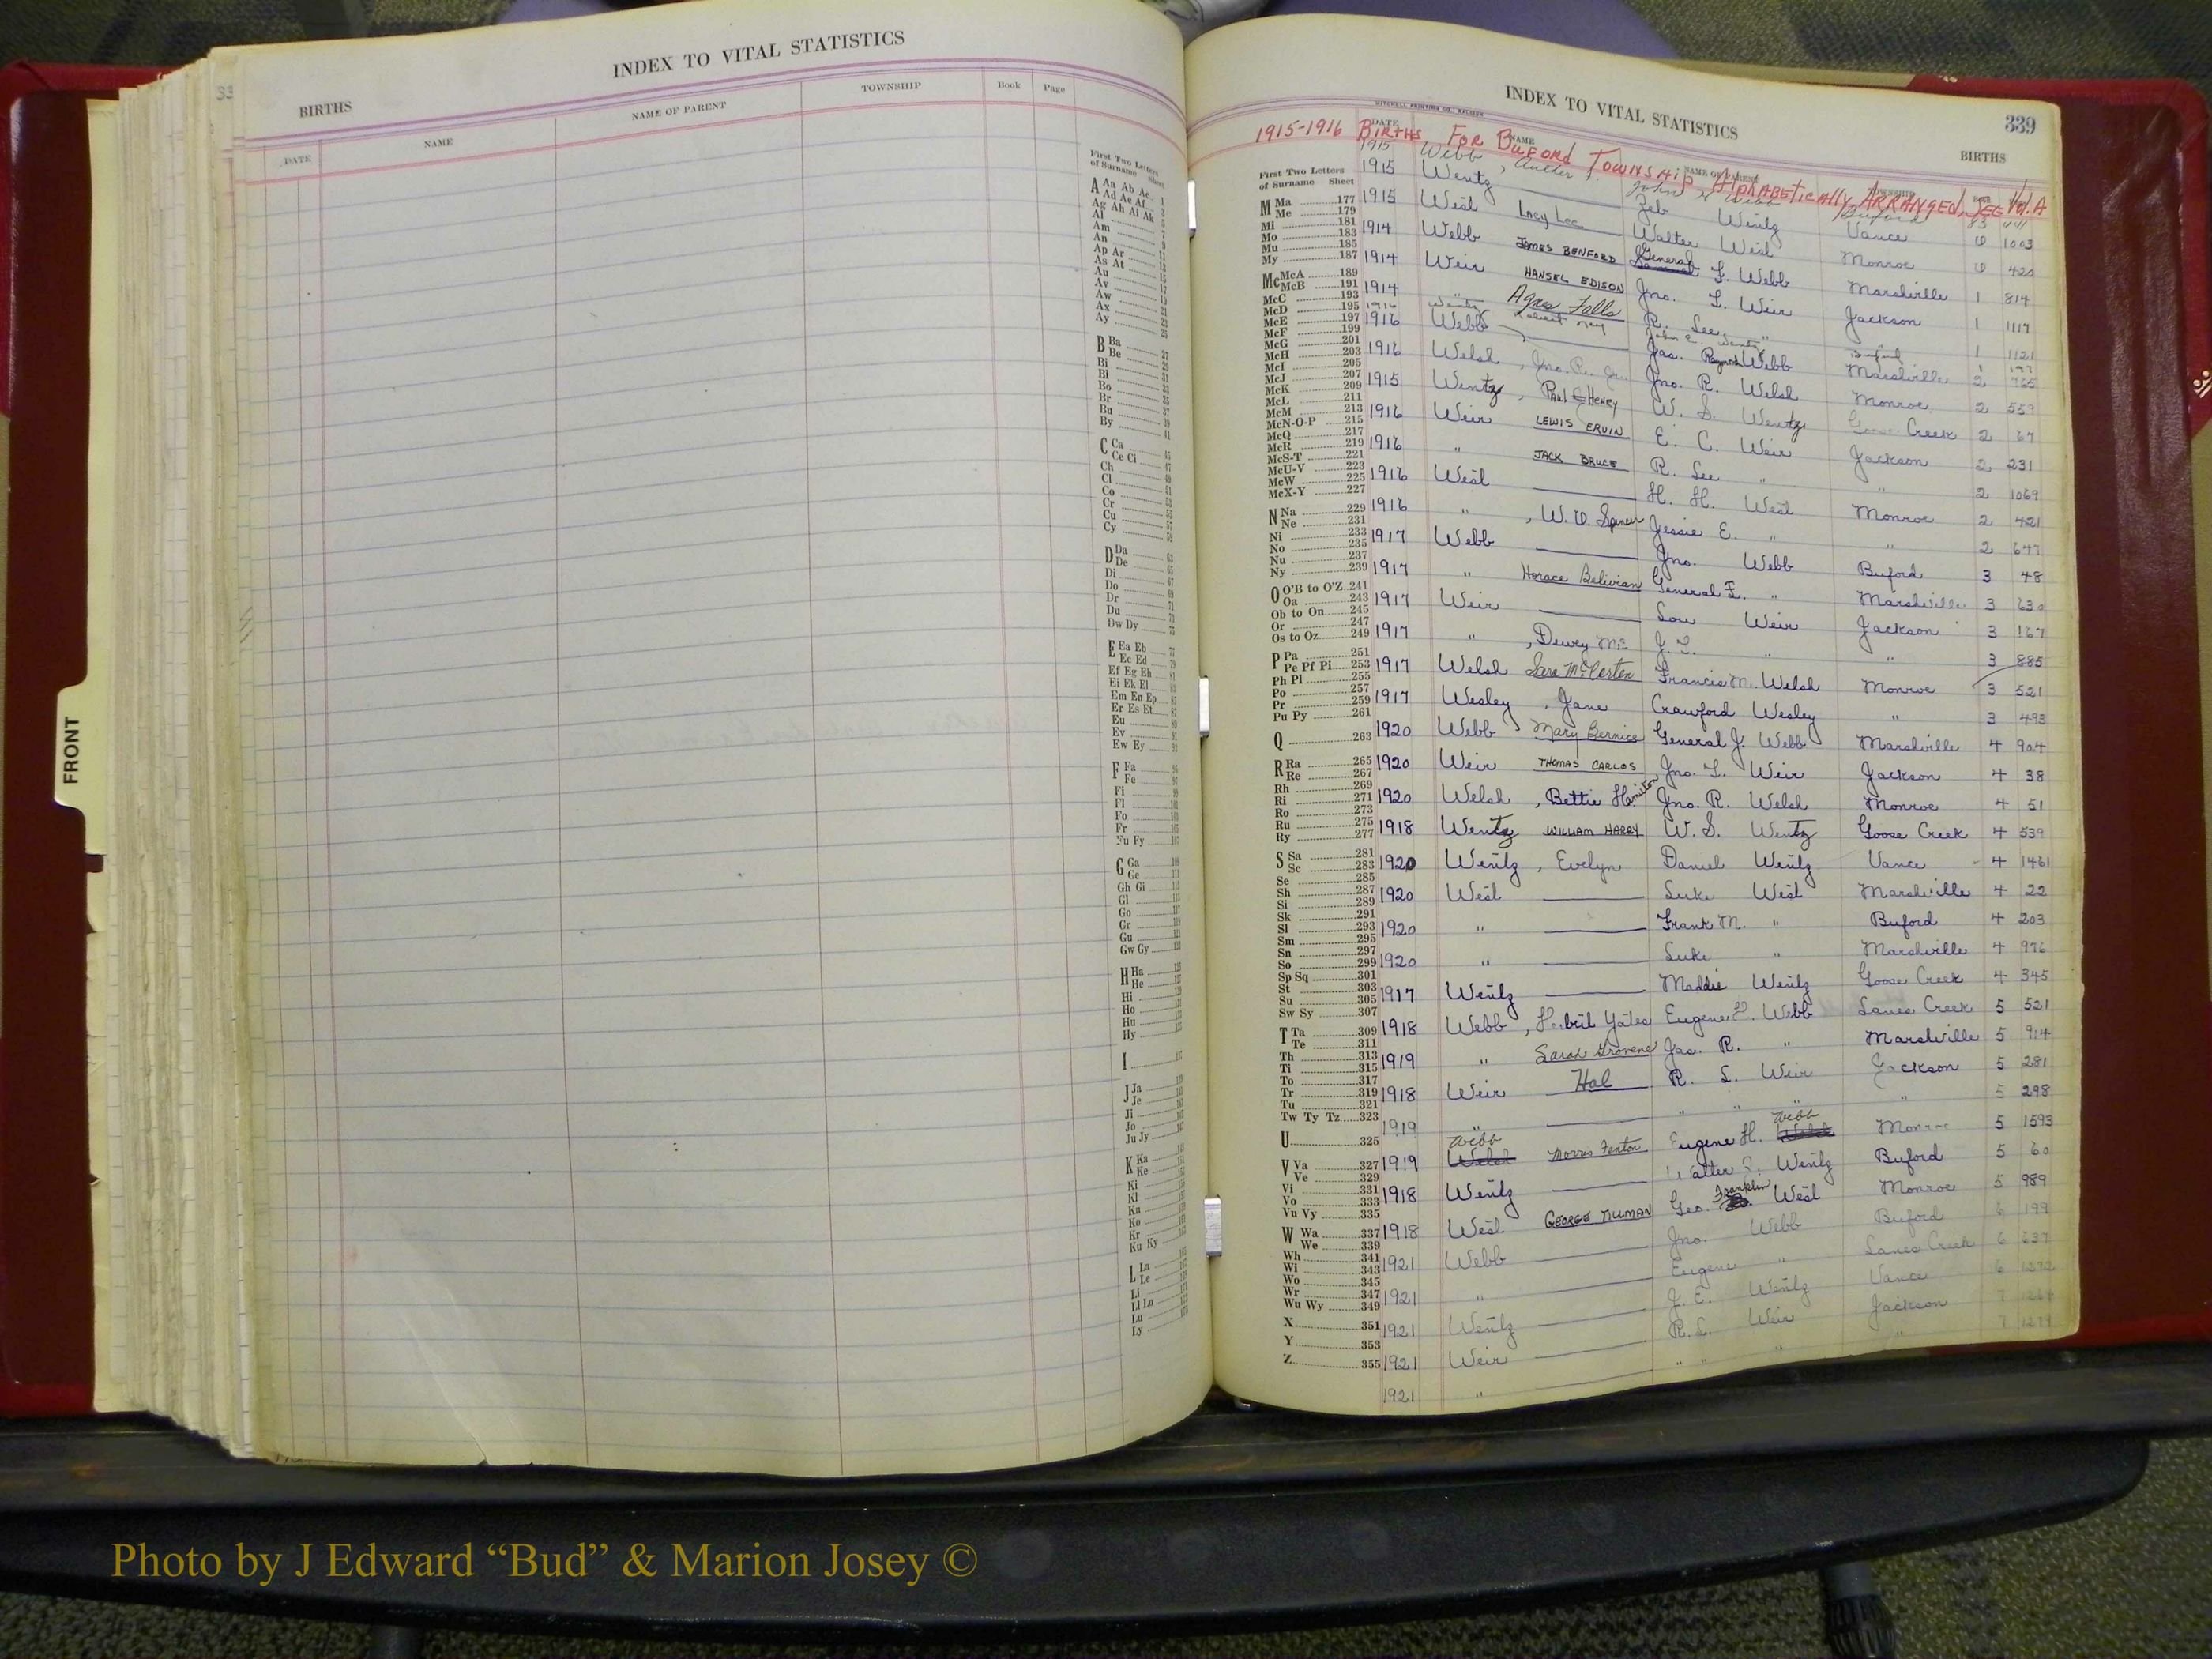 33
INDEX TO VITAL STATISTICS
BIRTHS
DATE NAME NAME OF PARENT TOWNSHIP Book Page
First Two Letters
of Surname Sheet
A Aa Ab Ac
Ad Ae Af
Ag Ah Ai Ak
Al
Am
An
Ap Ar
As At
Au
Av
Aw
Ax
Ay
B Ba
Be
Bi
Bl
Bo
Br
Bu
By
C Ca
Ce Ci
Ch
Cl
Co
Cr
Cu
Cy
D Da
De
Di
Do
Dr
Du
Dw Dy
E Ea Eb
Ec Ed
Ef Eg Eh
Ei Ek El
Em En Ep
Er Es Et
Eu
Ev
Ew Ey
F Fa
Fe
Fi
Fl
Fo
Fr
Fu Fy
G Ga
Ge
Gh Gi
Gl
Go
Gr
Gu
Gw Gy
H Ha
He
Hi
Ho
Hu
Hy
I
J Ja
Je
Ji
Jo
Ju Jy
K Ka
Ke
Ki
Kl
Kn
Ko
Kr
Ku Ky
L La
Le
Li
Ll Lo
Lu
Ly
FRONT
INDEX TO VITAL STATISTICS
339
MITCHELL PRINTING CO., RALEIGH
BIRTHS
DATE NAME NAME OF PARENT TOWNSHIP
1915-1916 BIRTHS FOR BUFORD TOWNSHIP ALPHABETICALLY ARRANGED, SEE Vol. A
First Two Letters
of Surname Sheet
M Ma 177
Me 179
Mi 181
Mo 183
Mu 185
My 187
Mc McA 189
McB 191
McC 193
McD 195
McE 197
McF 199
McG 201
McH 203
McI 205
McJ 207
McK 209
McL 211
McM 213
McN-O-P 215
McQ 217
McR 219
McS-T 221
McU-V 223
McW 225
McX-Y 227
N Na 229
Ne 231
Ni 233
No 235
Nu 237
Ny 239
O O'B to O'Z 241
Oa 243
Ob to On 245
Or 247
Os to Oz 249
P Pa 251
Pe Pf Pi 253
Ph Pl 255
Po 257
Pr 259
Pu Py 261
Q 263
R Ra 265
Re 267
Rh 269
Ri 271
Ro 273
Ru 275
Ry 277
S Sa 281
Sc 283
Se 285
Sh 287
Si 289
Sk 291
Sl 293
Sm 295
Sn 297
So 299
Sp Sq 301
St 303
Su 305
Sw Sy 307
T Ta 309
Te 311
Th 313
Ti 315
To 317
Tr 319
Tu 321
Tw Ty Tz 323
U 325
V Va 327
Ve 329
Vi 331
Vo 333
Vu Vy 335
W Wa 337
We 339
Wh 341
Wi 343
Wo 345
Wr 347
Wu Wy 349
X 351
Y 353
Z 355
1915 Webb, John Webb Buford 83
1915 Wentz Zeb Wentz Vance 1003
1915 West Lacy Lee Walter West Monroe 420
1914 Webb JAMES BENFORD General F. Webb Marshville 1 814
1914 Weir HANSEL EDISON Jno. L. Weir Jackson 1 1117
1914 " Agnes Falls R. Lee " 1 1121
1916 Wentz Robert Ray John C. Wentz Buford 1
1916 Webb Jas. Raymond Webb Marshville 2 765
1916 Welsh, Jno. R. Jr. Jno. R. Welsh Monroe 2 559
1915 Wentz, PAUL HENRY W. S. Wentz Goose Creek 2 67
1916 Weir LEWIS ERVIN E. C. Weir Jackson 2 231
1916 " JACK BRUCE R. Lee " " 2 1069
1916 West H. H. West Monroe 2 421
1916 ", W. O. Spencer Jessie E. " " 2 647
1917 Webb Jno. Webb Buford 3 48
1917 " Horace Belivian General F. " Marshville 3 630
1917 Weir Lou Weir Jackson 3 167
1917 ", Dewey Mc J. L. " " 3 885
1917 Welsh Sara McLester Francis M. Welsh Monroe 3 521
1917 Wesley, Jane Crawford Wesley " 3 493
1920 Webb Mary Bernice General J. Webb Marshville 4 904
1920 Weir THOMAS CARLOS Jno. L. Weir Jackson 4 38
1920 Welsh, Bettie Jno. R. Welsh Monroe 4 51
1918 Wentz WILLIAM HARRY W. S. Wentz Goose Creek 4 539
1920 Wentz, Evelyn Daniel Wentz Vance 4 1461
1920 West Luke West Marshville 4 22
1920 " Frank M. " Buford 4 203
1920 " Luke " Marshville 4 976
1917 Wentz Maddie Wentz Goose Creek 4 345
1918 Webb, Yates Eugene H. Webb Lanes Creek 5 521
1919 " Sarah Grovene Jas. R. " Marshville 5 914
1918 Weir Hal R. L. Weir Jackson 5 281
1919 " " " " " 5 298
1919 Webb Welsh Morris Fenton Eugene H. Webb Welsh Monroe 5 1593
1918 Wentz Walter Wentz Buford 5 60
1918 West GEORGE TILLMAN Geo. Franklin West Monroe 5 989
1921 Webb Jno. Webb Buford 6 199
1921 " Eugene " Lanes Creek 6 637
1921 Wentz J. E. Wentz Vance 6 1272
1921 Weir R. L. Weir Jackson 7
1921 " " " " " 7
Photo by J Edward “Bud” & Marion Josey ©